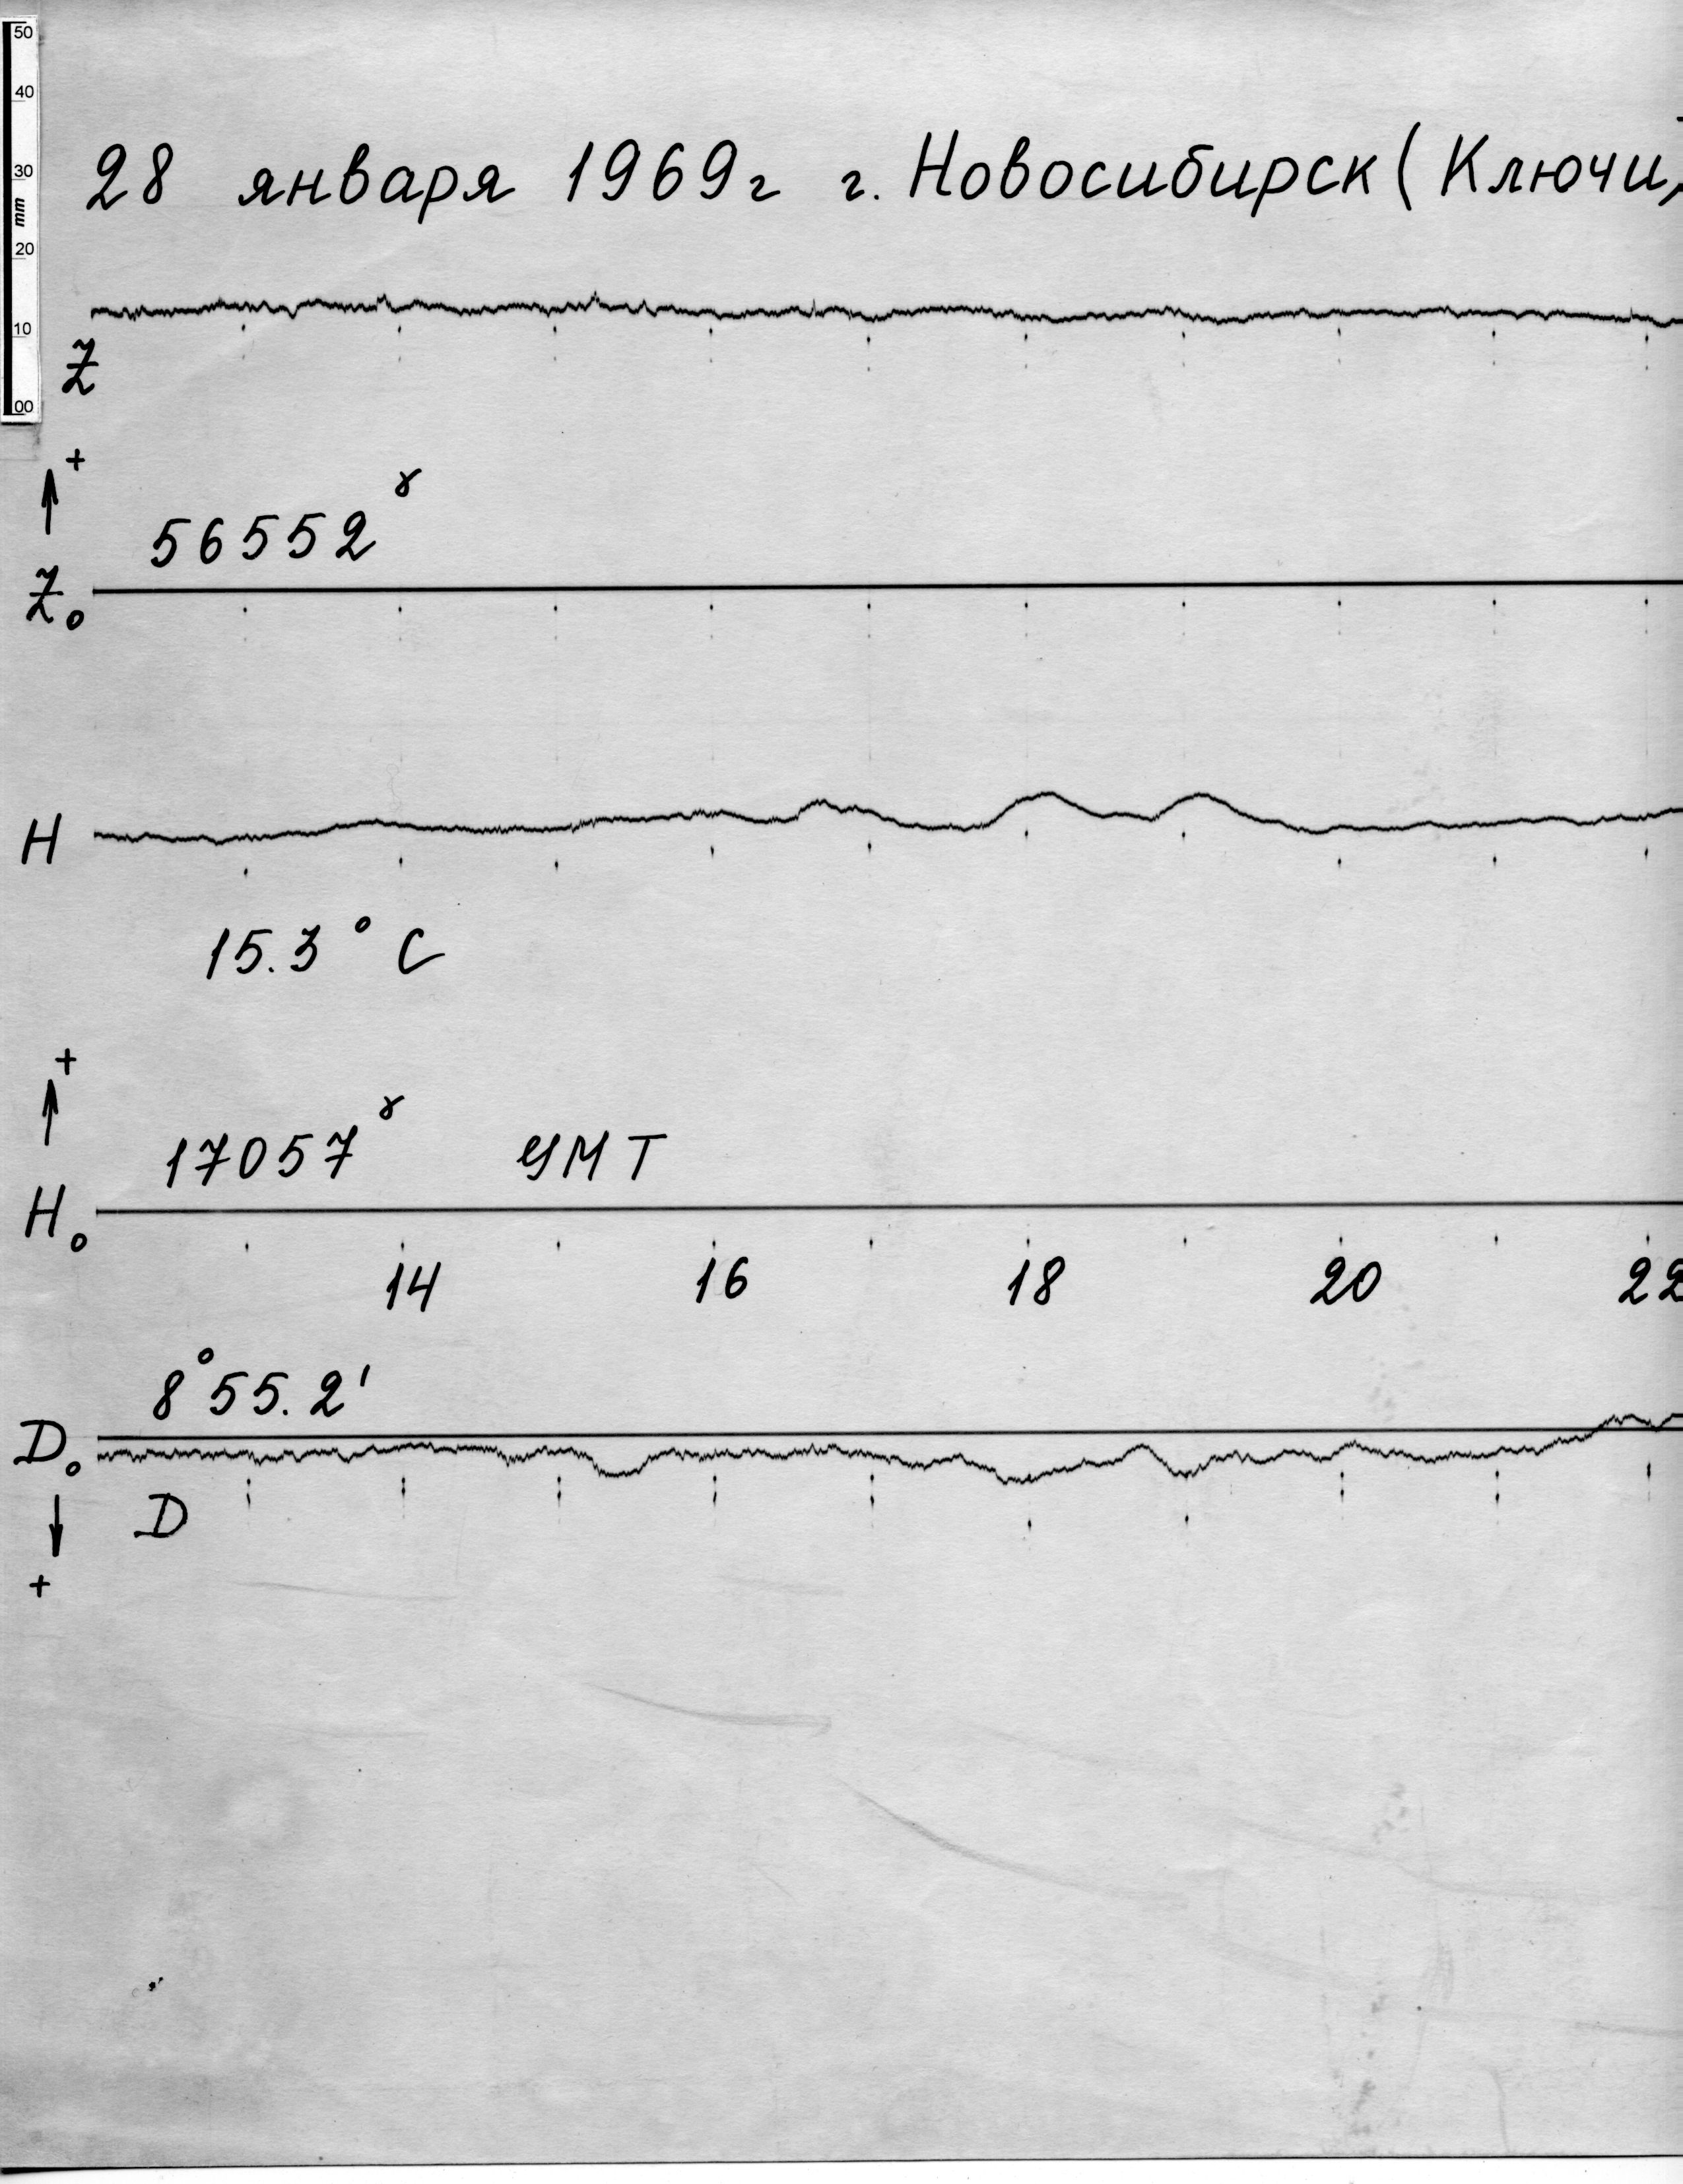 50
40
30
mm
20
10
00
28 января 1969г г. Новосибирск (Ключи)
Z
+
56552 γ
Z₀
H
15.3° C
+
17057 γ УМТ
H₀
14 16 18 20 22
8°55.2'
D₀
D
+